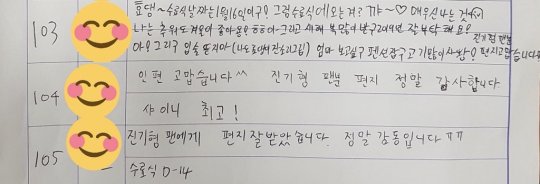 103
효댕~ 수료식날짜는 1월16일이구! 그럼 수료식에 오는거? 까~♡ 매우 신나는 것
나는 추위도 겨울이 좋아용 ㅎㅎ 아 그리고 새해 복 많이 받구 2019년 잘 부탁 해 요!
아! 그리구 입술 뜨지마 엄마 보고싶구 편선 감구고 기밥이 사랑! 진기형 팬분 편지 고맙습니다
104
인편 고맙습니다^^ 진기형 팬분 편지 정말 감사합니다
샤이니 최고!
105
진기형 팬에게 편지 잘 받았습니다. 정말 감동입니다 ㅠㅠ
수료식 D-14